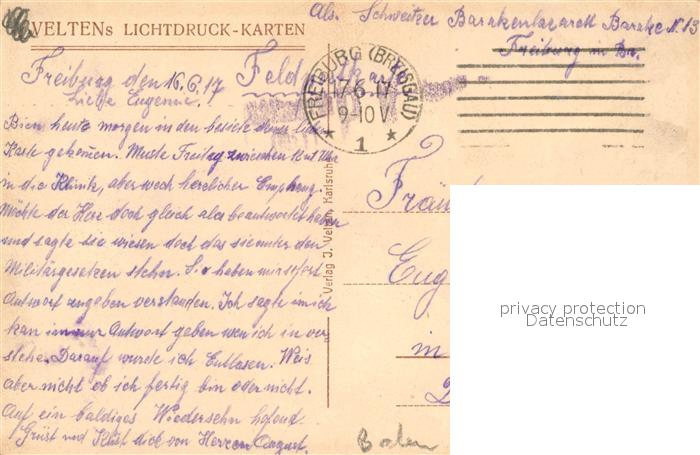 VELTENs LICHTDRUCK-KARTEN
Abs. Schweitzer Barakenlazarett Barake N. 13
Freiburg in Br.
Freiburg den 16.6.17 Feldpostkarte
Liebe Eugenie!
FREIBURG (BREISGAU)
17.6.17
9-10 V
* 1 *
Bien heute morgen in den besietz deiner lieben
Karte gekomen. Muste Freitag zwischen 12 u 1 Uhr
in die Klinik, aber welch herrlicher Empfang.
Möchte der Herr doch gleich alles beantwortet haben
und sagte sie wissen doch das sie unter den
Militärgesetzen stehen. Sie haben mir sofort
Antwort zugeben verstanden. Ich sagte im ich
kan immer Antwort geben wen ich in ver-
stehe. Darauf wurde ich Entlasen. Weis
aber nicht ob ich fertig bin oder nicht.
Auf ein baldiges Wiedersehn hofend.
Grüst und Küst dich von Herzen August.
Verlag J. Velten, Karlsruhe
Fräu
Eug
in
Baden
privacy protection
Datenschutz